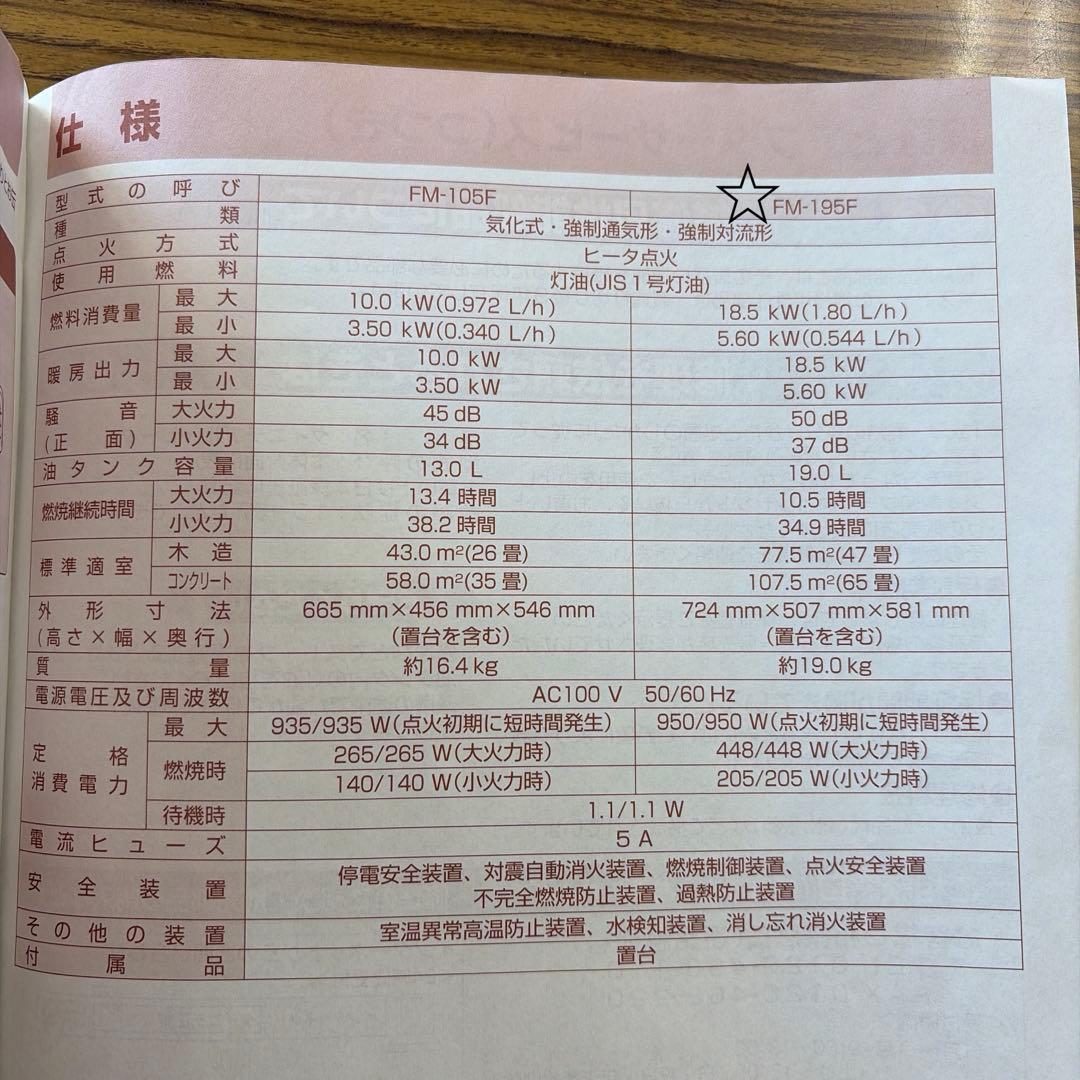 仕様
型式の呼び FM-105F ☆FM-195F
種類 気化式・強制通気形・強制対流形
点火方式 ヒータ点火
使用燃料 灯油(JIS1号灯油)
燃料消費量 最大 10.0 kW(0.972 L/h) 18.5 kW(1.80 L/h)
最小 3.50 kW(0.340 L/h) 5.60 kW(0.544 L/h)
暖房出力 最大 10.0 kW 18.5 kW
最小 3.50 kW 5.60 kW
騒音(正面) 大火力 45 dB 50 dB
小火力 34 dB 37 dB
油タンク容量 13.0 L 19.0 L
燃焼継続時間 大火力 13.4 時間 10.5 時間
小火力 38.2 時間 34.9 時間
標準適室 木造 43.0 m²(26 畳) 77.5 m²(47 畳)
コンクリート 58.0 m²(35 畳) 107.5 m²(65 畳)
外形寸法 665 mm×456 mm×546 mm 724 mm×507 mm×581 mm
(高さ×幅×奥行) (置台を含む) (置台を含む)
質量 約16.4 kg 約19.0 kg
電源電圧及び周波数 AC100 V 50/60 Hz
定格消費電力 最大 935/935 W(点火初期に短時間発生) 950/950 W(点火初期に短時間発生)
燃焼時 265/265 W(大火力時) 448/448 W(大火力時)
140/140 W(小火力時) 205/205 W(小火力時)
待機時 1.1/1.1 W
電流ヒューズ 5 A
安全装置 停電安全装置、対震自動消火装置、燃焼制御装置、点火安全装置
不完全燃焼防止装置、過熱防止装置
その他の装置 室温異常高温防止装置、水検知装置、消し忘れ消火装置
付属品 置台